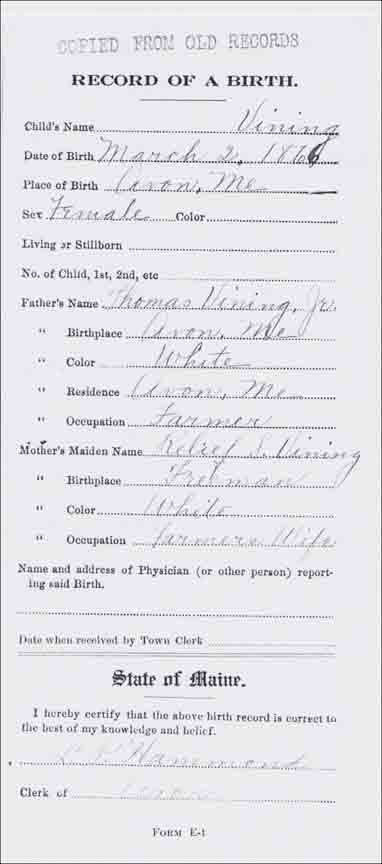 COPIED FROM OLD RECORDS
RECORD OF A BIRTH.
Child's Name Vining
Date of Birth March 2, 1866
Place of Birth Avon, Me
Sex Female Color
Living or Stillborn
No. of Child, 1st, 2nd, etc
Father's Name Thomas Vining, Jr.
" Birthplace Avon, Me
" Color White
" Residence Avon, Me
" Occupation Farmer
Mother's Maiden Name S. Vining
" Birthplace Freeman
" Color White
" Occupation Farmers Wife
Name and address of Physician (or other person) report-
ing said Birth.
Date when received by Town Clerk
State of Maine.
I hereby certify that the above birth record is correct to
the best of my knowledge and belief.
Hammond
Clerk of Avon
FORM E-1